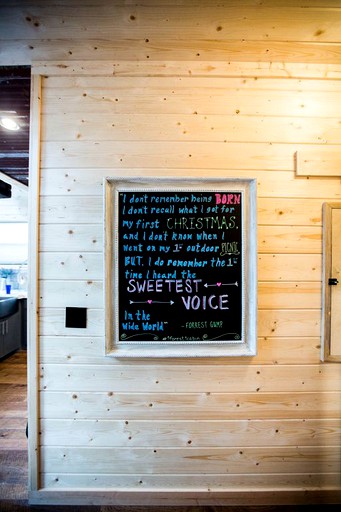 "I don't remember being BORN
I don't recall what I got for
my first CHRISTMAS,
and I don't know when I
went on my 1st outdoor PICNIC
BUT, I do remember the 1st
time I heard the
SWEETEST
VOICE
In the
Wide World"
-FORREST GUMP